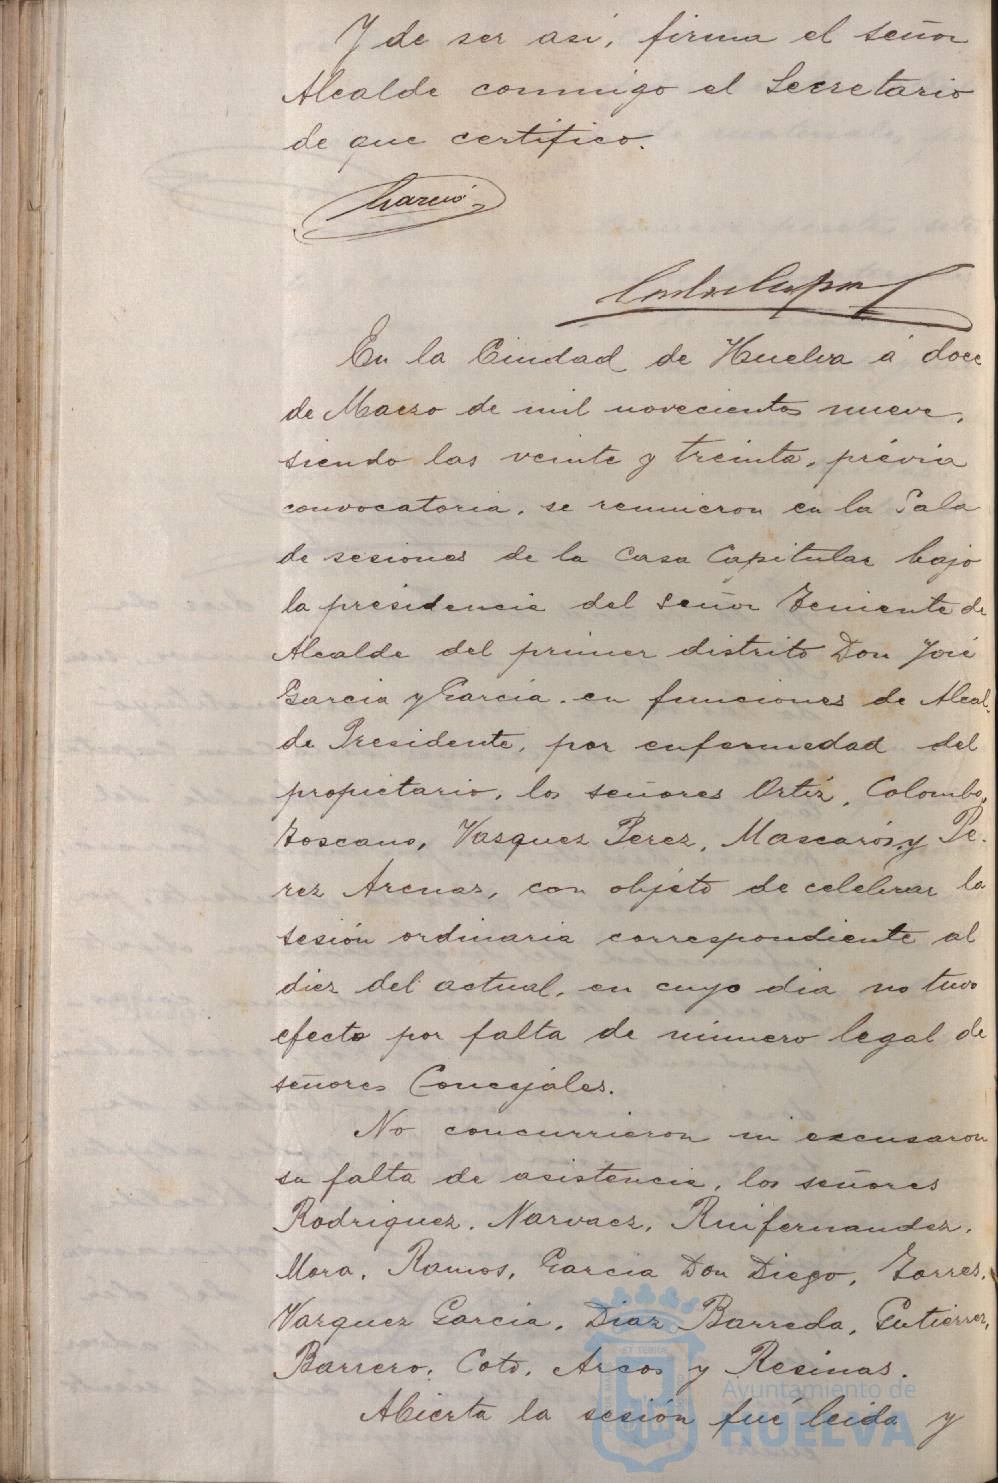 Y de ser asi, firma el señor
Alcalde conmigo el Secretario
de que certifico.
Garcia
En la Ciudad de Huelva á doce
de Marzo de mil novecientos nueve,
siendo las veinte y treinta, prévia
convocatoria, se reunieron en la Sala
de sesiones de la Casa Capitular bajo
la presidencia del señor Teniente de
Alcalde del primer distrito Don José
Garcia y Garcia, en funciones de Alcal-
de Presidente, por enfermedad del
propietario, los señores Ortiz, Colombo,
Toscano, Vasquez Perez, Mascarós, y Pe-
rez Arenas, con objeto de celebrar la
sesión ordinaria correspondiente al
diez del actual, en cuyo dia no tuvo
efecto por falta de número legal de
señores Concejales.
No concurrieron ni excusaron
su falta de asistencia, los señores
Rodriguez, Narvaez, Ruifernandez,
Mora, Ramos, Garcia Don Diego, Torres,
Vazquez Garcia, Diaz Barreda, Gutierrez,
Barrero, Coto, Arcos y Resinas.
Abierta la sesión fué leida y
Ayuntamiento de
HUELVA